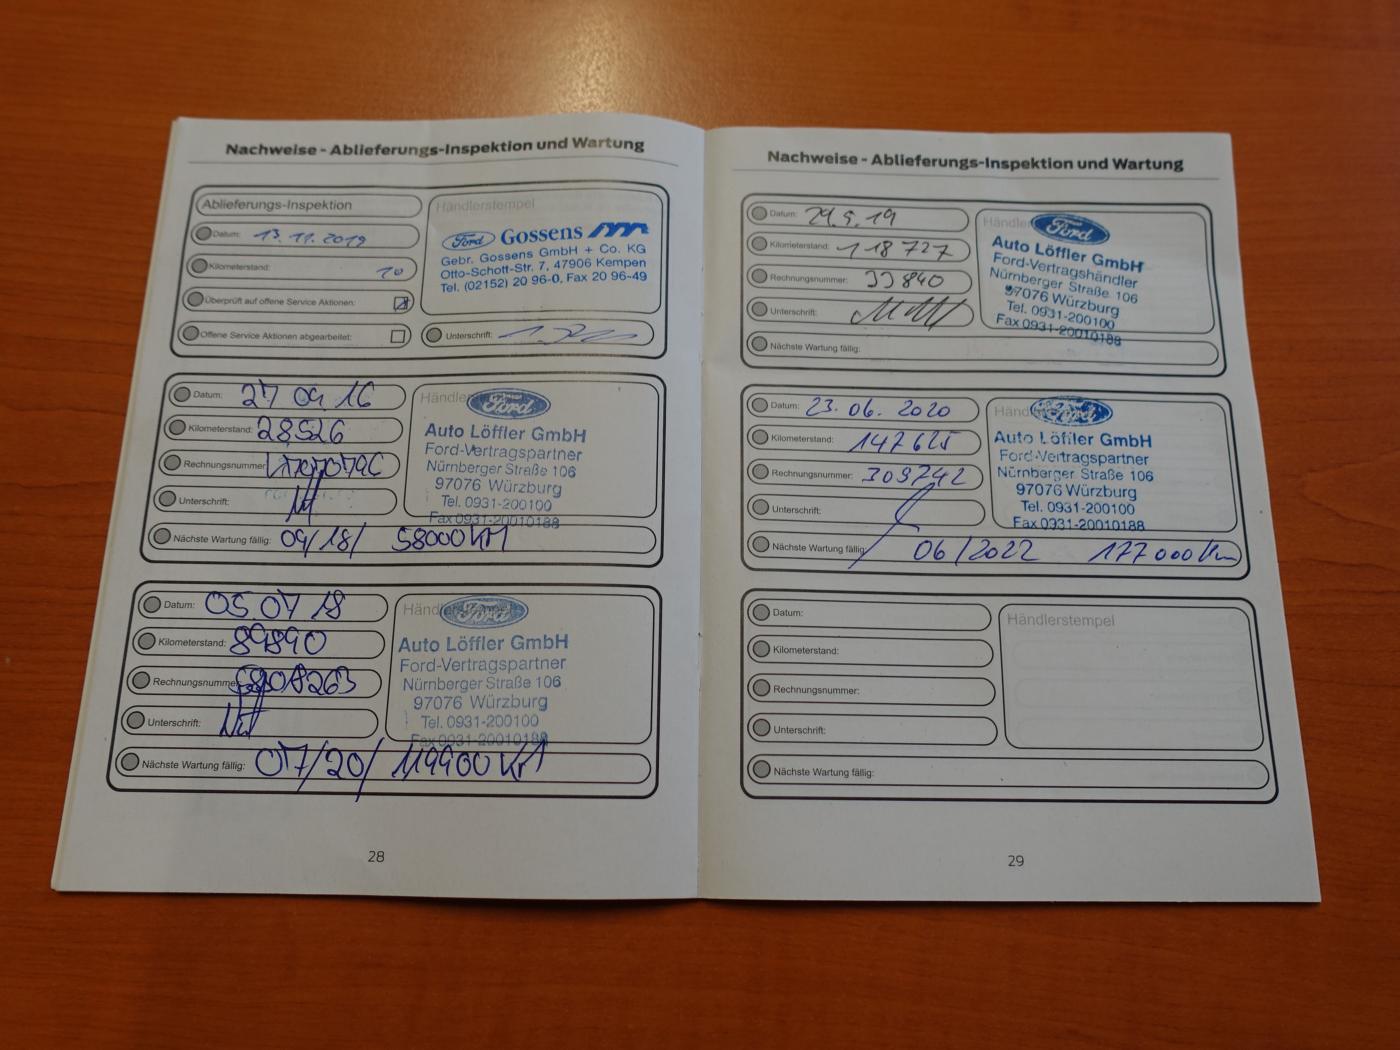 Nachweise - Ablieferungs-Inspektion und Wartung
Ablieferungs-Inspektion
Datum: 13.11.2019
Kilometerstand: 10
Überprüft auf offene Service Aktionen:
Offene Service Aktionen abgearbeitet:
Händlerstempel
Ford Gossens
Gebr. Gossens GmbH + Co. KG
Otto-Schott-Str. 7, 47906 Kempen
Tel. (02152) 20 96-0, Fax 20 96-49
Unterschrift:
Datum: 27 09 16
Kilometerstand: 28526
Rechnungsnummer
Unterschrift:
Nächste Wartung fällig: 09/18/ 58000 KM
Händle
Ford
Auto Löffler GmbH
Ford-Vertragspartner
Nürnberger Straße 106
97076 Würzburg
Tel. 0931-200100
Fax 0931-20010188
Datum: 05 07 18
Kilometerstand: 89890
Rechnungsnumme
Unterschrift:
Nächste Wartung fällig: 07/20/ 119900 KM
Händ
Ford
Auto Löffler GmbH
Ford-Vertragspartner
Nürnberger Straße 106
97076 Würzburg
Tel. 0931-200100
Fax 0931-20010188
28
Nachweise - Ablieferungs-Inspektion und Wartung
Datum: 29.5.19
Kilometerstand: 118727
Rechnungsnummer: 33840
Unterschrift:
Nächste Wartung fällig:
Händle
Ford
Auto Löffler GmbH
Ford-Vertragshändler
Nürnberger Straße 106
97076 Würzburg
Tel. 0931-200100
Fax 0931-20010188
Datum: 23.06.2020
Kilometerstand: 147625
Rechnungsnummer: 309742
Unterschrift:
Nächste Wartung fällig: 06/2022 177000 Km
Händ
Ford
Auto Löffler GmbH
Ford-Vertragspartner
Nürnberger Straße 106
97076 Würzburg
Tel. 0931-200100
Fax 0931-20010188
Datum:
Kilometerstand:
Rechnungsnummer:
Unterschrift:
Nächste Wartung fällig:
Händlerstempel
29